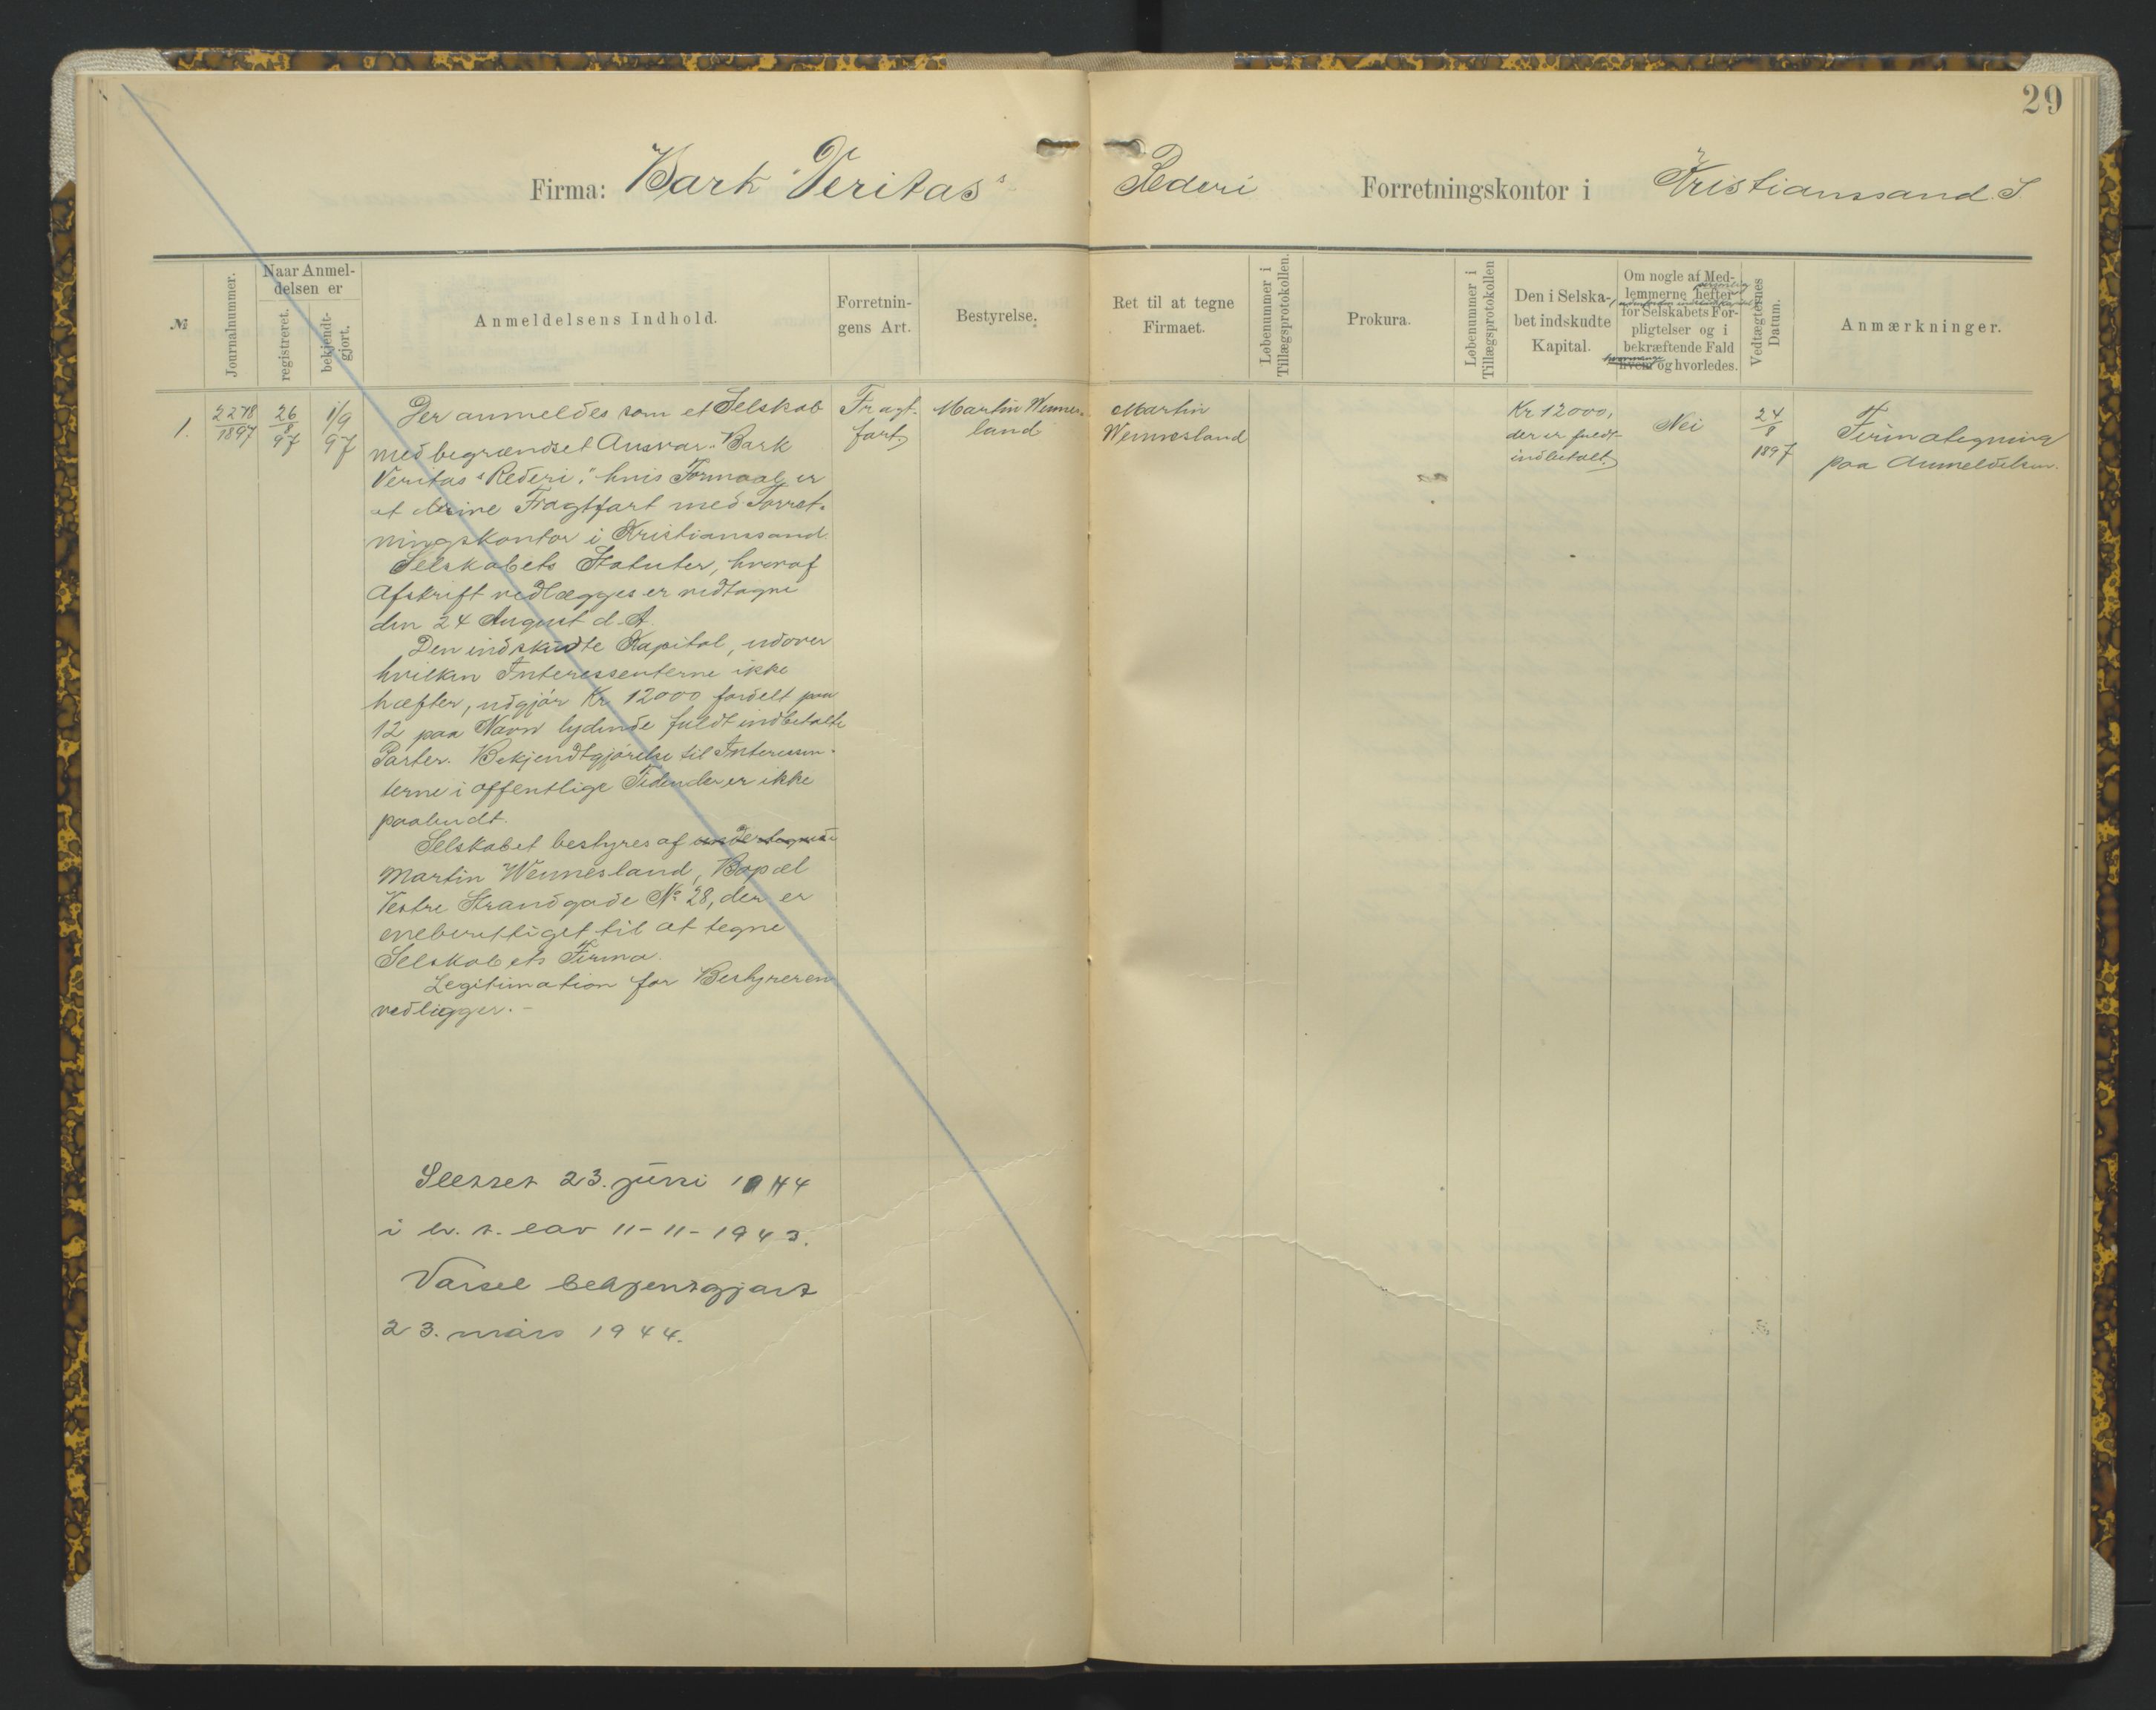 29
Firma: Bark "Veritas" Rederi Forretningskontor i Kristianssand. S.
№
Journalnummer.
Naar Anmel-
delsen er
registreret.
bekjendt-
gjort.
Anmeldelsens Indhold.
Forretnin-
gens Art.
Bestyrelse.
Ret til at tegne
Firmaet.
Løbenummer i
Tillægsprotokollen.
Prokura.
Løbenummer i
Tillægsprotokollen
Den i Selska-
bet indskudte
Kapital.
Om nogle af Med-
lemmerne hefter
for Selskabets For-
pligtelser og i
bekræftende Fald
hvem og hvorledes.
Vedtægternes
Datum.
Anmærkninger.
1.
2278
1897
26
8
97
1/9
97
Der anmeldes som et Selskab
med begrændset Ansvar "Bark
Veritas" Rederi," hvis Formaal er
at drive Fragtfart med Forret-
ningskontor i Kristianssand.
Selskabets Statuter, hvoraf
Afskrift vedlægges er vedtagne
den 24 August d. A.
Den indskudte Kapital, udover
hvilken Interessenterne ikke
hæfter, udgjør Kr 12000 fordelt paa
12 paa Navn lydende fuldt indbetalte
Parter. Bekjendtgjørelse til Interessen-
terne i offentlige Tidender er ikke
paabudt.
Selskabet bestyres af undertegnede
Martin Wennesland, Bopæl
Vestre Strandgade No 28, der er
eneberettiget til at tegne
Selskabets Firma.
Legitimation for Bestyreren
vedligger. -
Fragt-
fart.
Martin Wennes-
land
Martin
Wennesland
Kr 12000,
der er fuldt
indbetalt.
Nei
24
8
1897
Firmategning
paa Anmeldelsen.
Slettet 23. juni 1944
i h. t. lov 11-11-1943.
Varsel bekjentgjort
23. mars 1944.